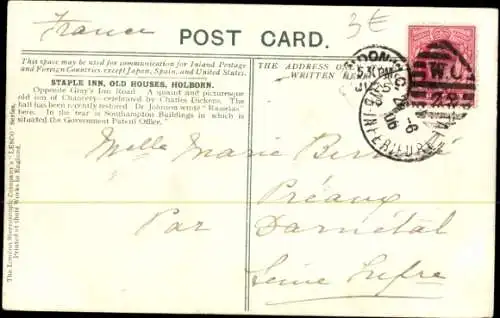 France
3€
POST CARD.
This space may be used for communication for Inland Postage
and Foreign Countries, except Japan, Spain, and United States.
THE ADDRESS
WRITTEN
STAPLE INN, OLD HOUSES, HOLBORN.
Opposite Gray's Inn Road. A quaint and picturesque
old Inn of Chancery—celebrated by Charles Dickens. The
hall has been recently restored. Dr. Johnson wrote "Rasselas"
here. In the rear is Southampton Buildings in which is
situated the Government Patent Office."
LONDON. W.C.
5. PM
JY 25
06
W.C
Melle Marie
Préaux
Par Darnétal
Seine Infre
The London Stereoscopic Company's "LESCO" Series.
Printed at their Works in England.